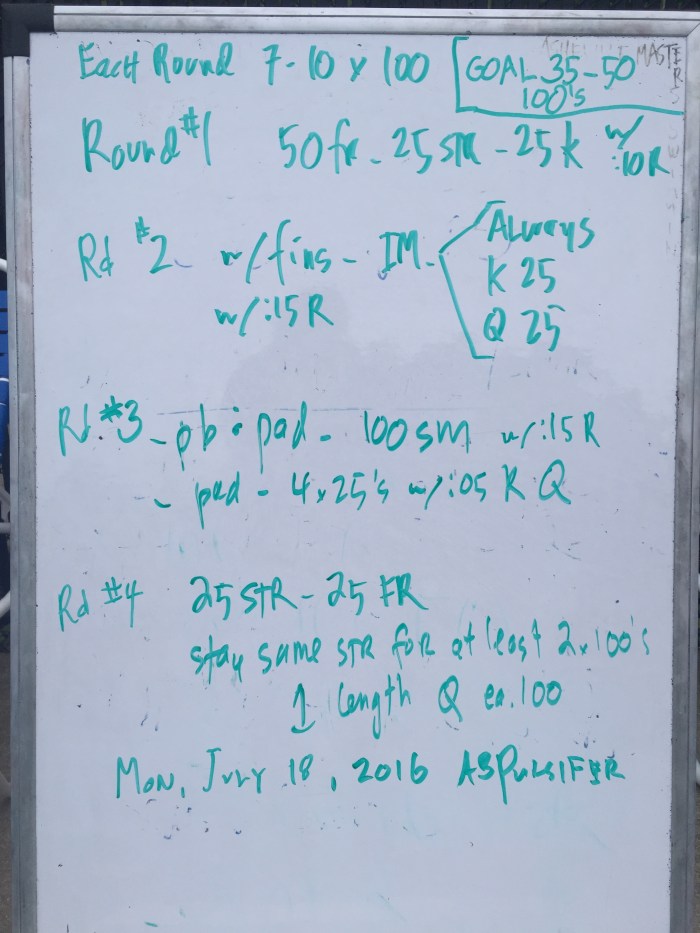 Each Round 7-10 x 100
GOAL 35-50
100's
MASTERS
Round #1 50 fr - 25 STR - 25 K w/ :10R
Rd #2 w/fins - IM -
w/:15 R
Always
K 25
Q 25
Rd. #3 - pb & pad - 100 sm w/:15 R
- pad - 4x25's w/:05 R Q
Rd #4 25 STR - 25 FR
stay same STR for at least 2x100's
1 length Q ea. 100
Mon, July 18, 2016 ASPULSIFER